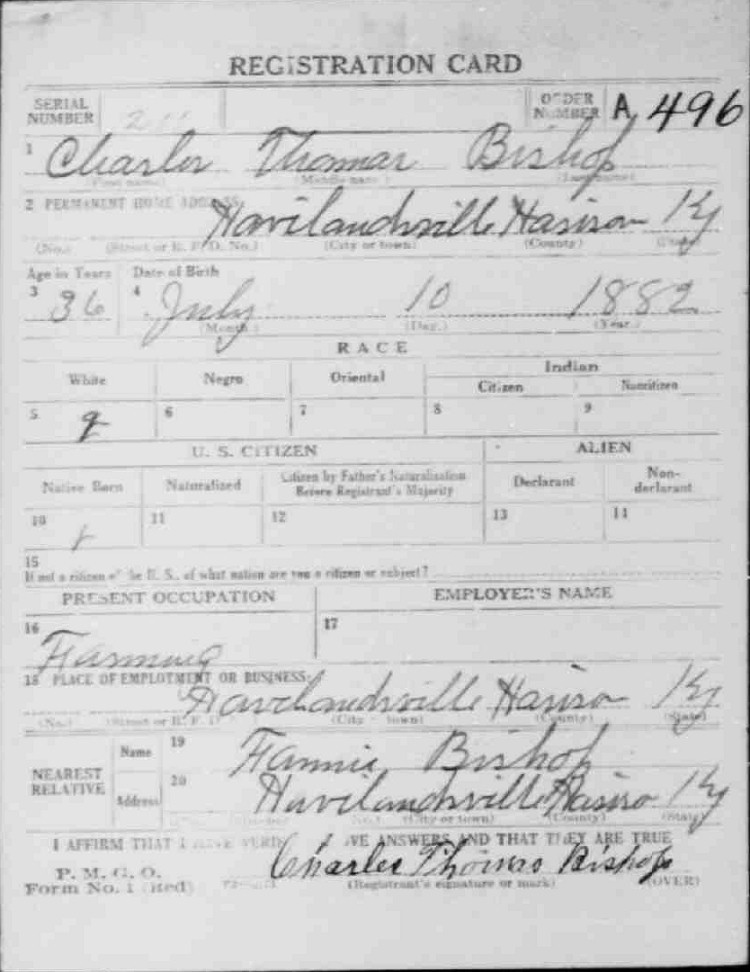 REGISTRATION CARD
SERIAL NUMBER 211 ORDER NUMBER A 496
1 Charles Thomas Bishop
(First name) (Middle name) (Last name)
2 PERMANENT HOME ADDRESS Havilandsville Harrison Ky
(No.) (Street or R. F. D. No.) (City or town) (County) (State)
Age in Years Date of Birth
3 36 4 July 10 1882
(Month.) (Day.) (Year.)
RACE
White Negro Oriental Indian
Citizen Noncitizen
5 6 7 8 9
U. S. CITIZEN ALIEN
Native Born Naturalized Citizen by Father's Naturalization Before Registrant's Majority Declarant Non-declarant
10 11 12 13 14
15
If not a citizen of the U. S., of what nation are you a citizen or subject?
PRESENT OCCUPATION EMPLOYER'S NAME
16 Farming 17
18 PLACE OF EMPLOYMENT OR BUSINESS Havilandsville Harrison Ky
(No.) (Street or R. F. D.) (City or town) (County) (State)
NEAREST RELATIVE Name 19 Fannie Bishop
Address 20 Havilandsville Harriso Ky
(City or town) (County) (State)
I AFFIRM THAT I HAVE VERIFIED ABOVE ANSWERS AND THAT THEY ARE TRUE
P. M. G. O.
Form No. 1 (Red) Charles Thomas Bishop
(Registrant's signature or mark) (OVER)